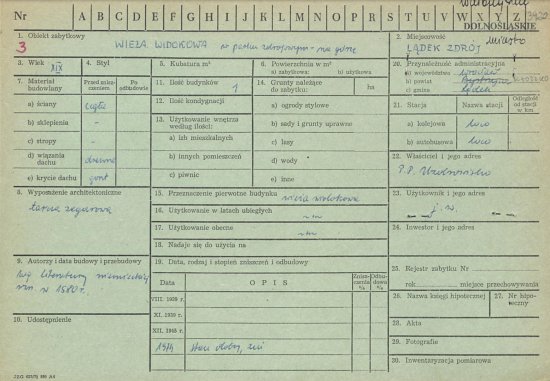 Nr A B C D E F G H I J K L M N O P R S T U V W X Y Z
DOLNOŚLĄSKIE
1. Obiekt zabytkowy
3 WIEŻA WIDOKOWA w parku zdrojowym - na górze
2. Miejscowość miasto
LĄDEK ZDRÓJ
3. Wiek XIX
4. Styl
5. Kubatura m³
6. Powierzchnia w m²
a) zabytkowa: b) użytkowa
20. Przynależność administracyjna
a) województwo wrocław
b) powiat Bystrzyca
c) gmina Lądek
7. Materiał budowlany
Przed zniszczeniem
Po odbudowie
a) ściany cegła
b) sklepienia -
c) stropy -
d) wiązania dachu drewno
e) krycie dachu gont
11. Ilość budynków 1
12. Ilość kondygnacji
13. Użytkowanie wnętrza według ilości:
a) izb mieszkalnych
b) innych pomieszczeń
c) piwnic
14. Grunty należące do zabytku: ha
a) ogrody stylowe
b) sady i grunty uprawne
c) lasy
d) wody
e) inne
21. Stacja
Nazwa stacji
Odległość od stacji w km
a) kolejowa
b) autobusowa
22. Właściciel i jego adres
P.P. Uzdrowisko
8. Wyposażenie architektoniczne
tarcza zegarowa
15. Przeznaczenie pierwotne budynku wieża widokowa
16. Użytkowanie w latach ubiegłych
17. Użytkowanie obecne
18. Nadaje się do użycia na
23. Użytkownik i jego adres
j.w.
24. Inwestor i jego adres
9. Autorzy i data budowy i przebudowy
wg literatury niemieckiej
w 1580 r.
19. Data, rodzaj i stopień zniszczeń i odbudowy
Data
OPIS
Zniszczenia %
Odbudowa %
VIII. 1939 r.
XI. 1939 r.
XII. 1945 r.
Stan dobry,
10. Udostępnienie
25. Rejestr zabytku Nr
rok miejsce przechowywania
26. Nazwa księgi hipotecznej
27. Nr hipoteczny
28. Akta
29. Fotografie
30. Inwentaryzacja pomiarowa